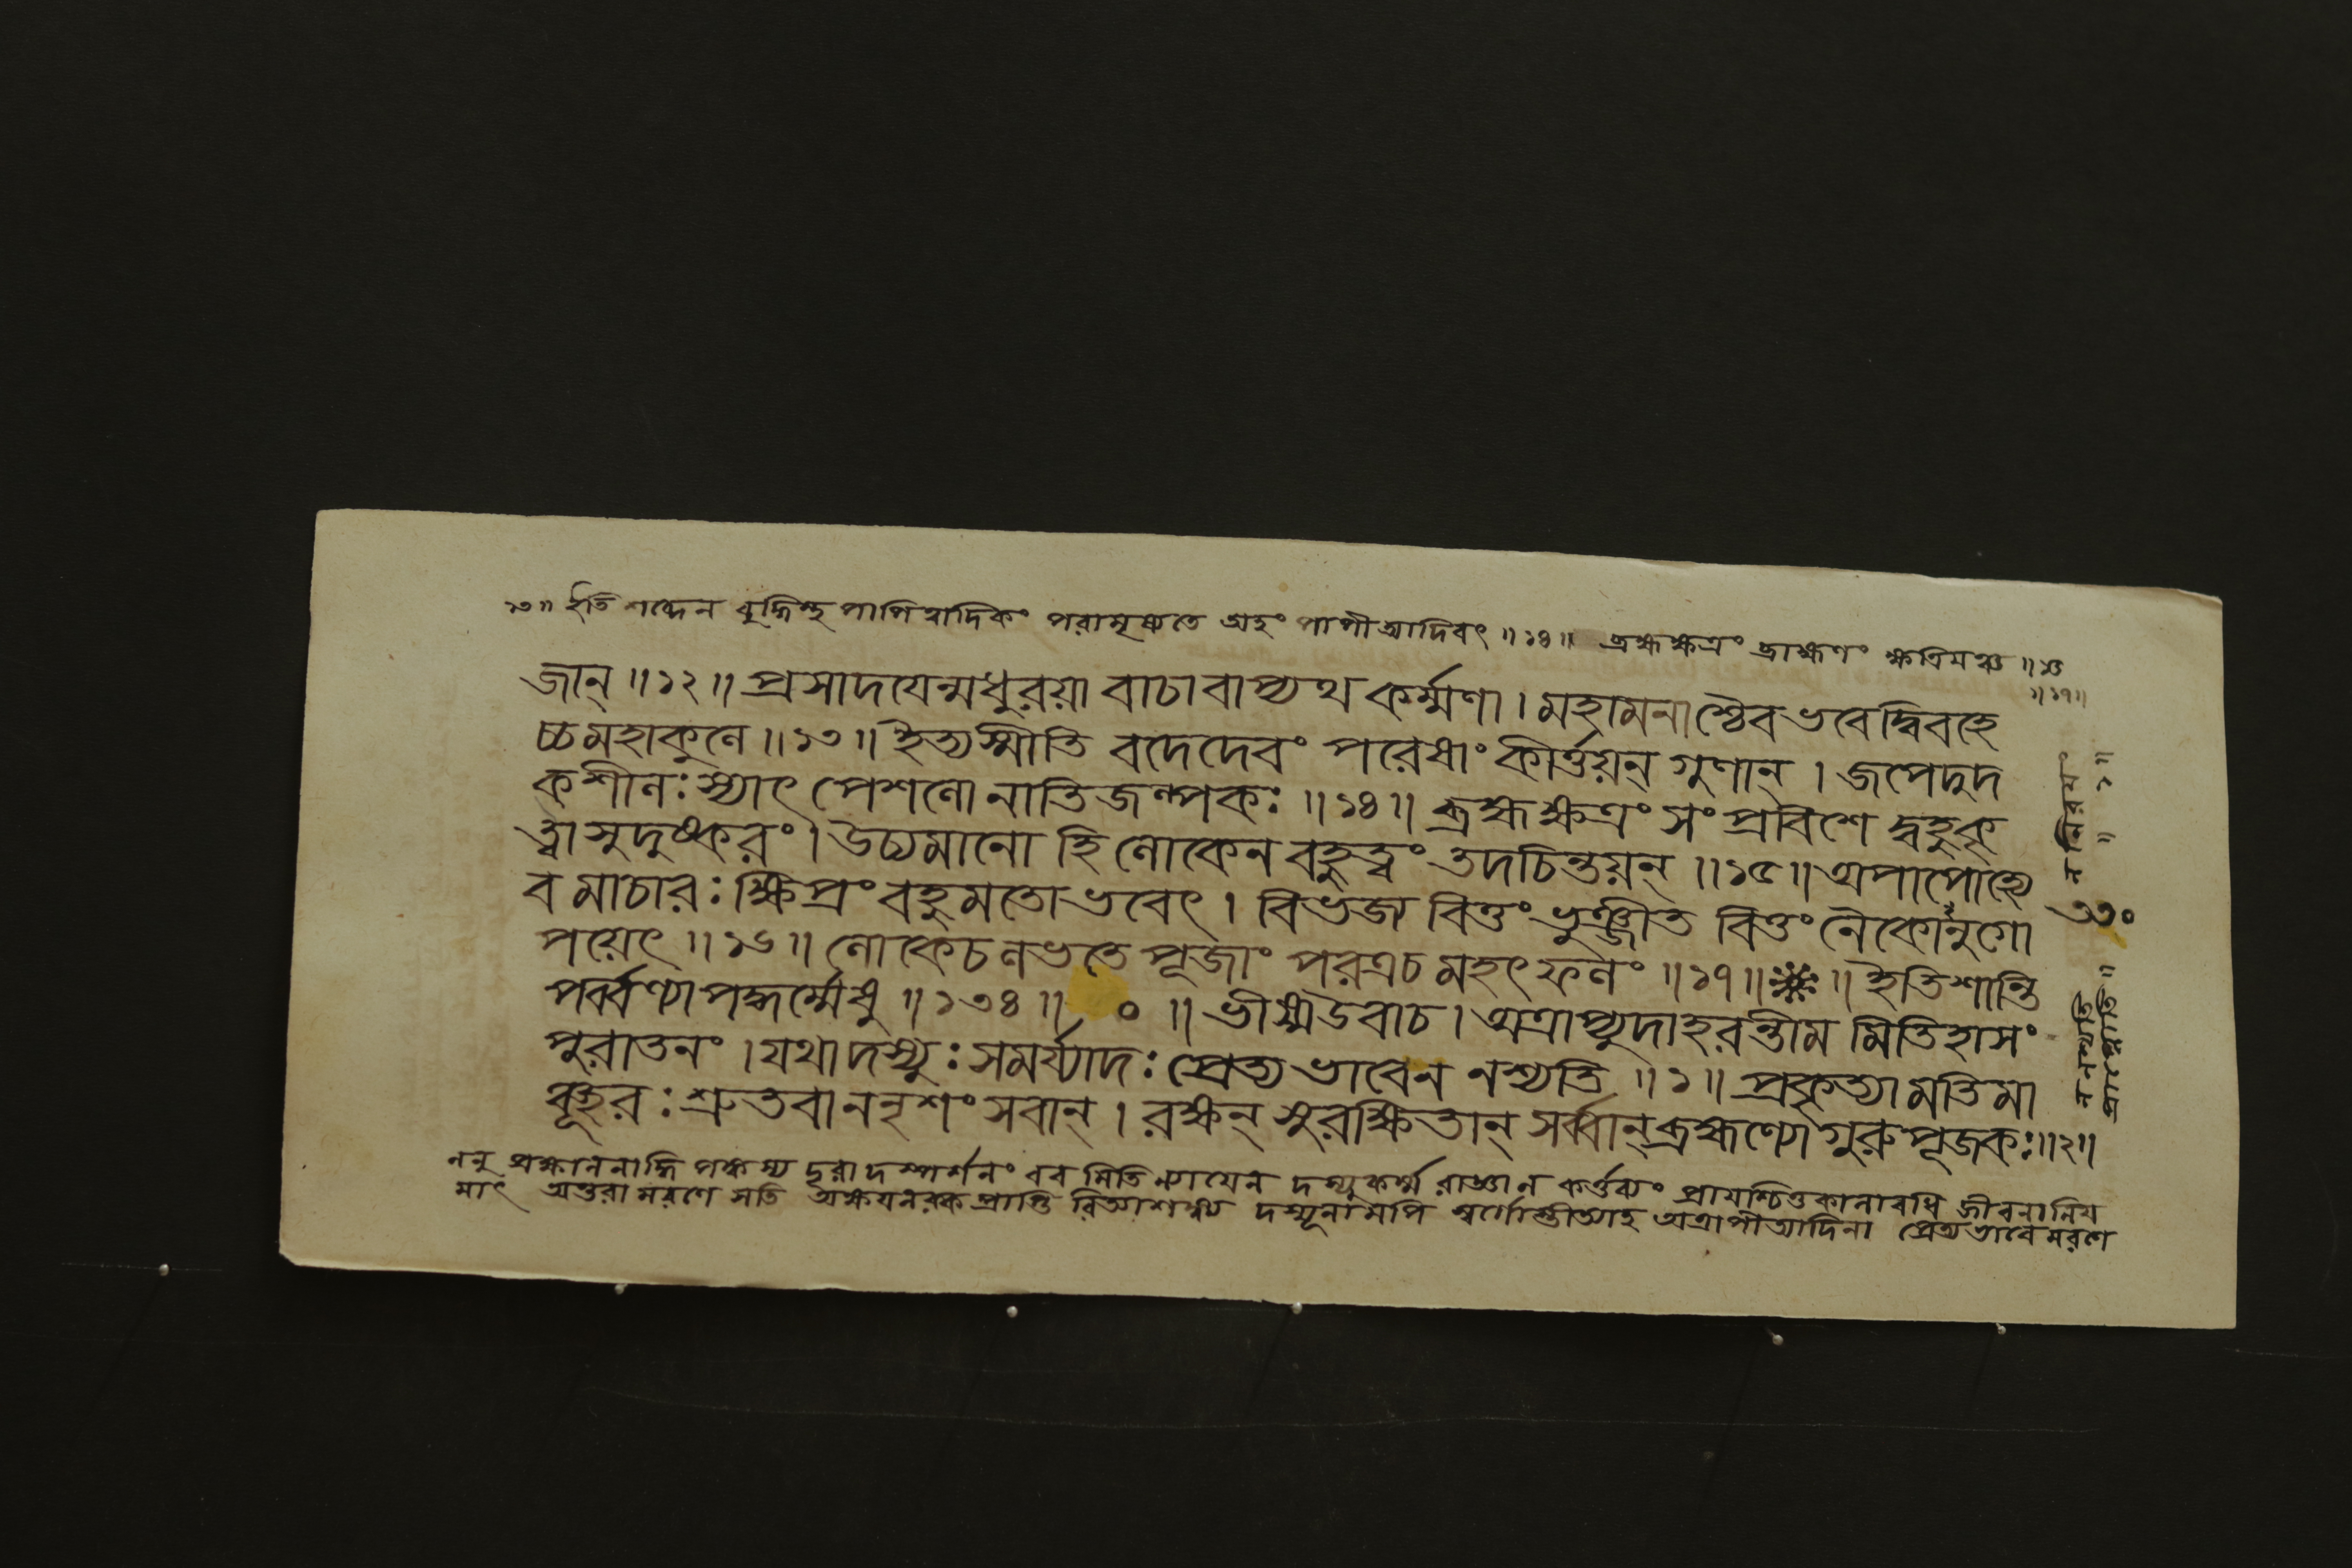 ১৩॥ ইতি শব্দেন বুদ্ধিস্থ পাপিত্বাদিকং পরামৃষ্যতে অহং পাপীত্যাদিবৎ ॥১৪॥ ব্রহ্মক্ষত্রং ব্রাহ্মণং ক্ষত্রিয়ঞ্চ ॥১৫
॥১৭॥
জান্ ॥১২॥ প্রসাদযেন্মধুরয়া বাচাবাপ্যথ কর্ম্মণা । মহামনাশ্চৈব ভবেদ্বিবহে
চ্চ মহাকুলে ॥১৩॥ ইত্যস্মীতি বদেদেবং পরেষাং কীর্ত্তয়ন্ গুণান্ । জপেদুদ
কশীলঃ স্যাৎ পেশলো নাতিজল্পকঃ ॥১৪॥ ব্রহ্মক্ষত্রং সংপ্রবিশেদ্বহুকৃ
ত্বা সুদুষ্করং । উচ্যমানো হি লোকেন বহুত্বং তদচিন্তয়ন্ ॥১৫॥ অপাপোহ্যে
ব মাচারঃ ক্ষিপ্রং বহুমতো ভবেৎ । বিভজ্য বিত্তং ভুঞ্জীত বিত্তং নৈকোনুগো
পয়েৎ ॥১৬॥ লোকে চ লভতে পূজাং পরত্র চ মহৎ ফলং ॥১৭॥ ॥ ইতি শান্তি
পর্ব্বণ্যাপদ্ধর্ম্মেষু ॥১৩৪॥ ০ ॥ ভীষ্ম উবাচ । অত্রাপ্যুদাহরন্তীম মিতিহাসং
পুরাতনং । যথা দস্যুঃ সমর্য্যাদঃ প্রেত্য ভাবেন নশ্যতি ॥১॥ প্রকৃত্যা মতিমা
ঞ্ছূরঃ শ্রুতবাননৃশংসবান্ । রক্ষন্ সুরক্ষিতান্ সর্ব্বান্ ব্রহ্মণ্যো গুরুপূজকঃ ॥২॥
ননু প্রক্ষালনাদ্ধি পঙ্কস্য দূরাদস্পর্শনং বরমিতি ন্যায়েন দস্যুকর্ম্ম রাজ্ঞা ন কর্ত্তব্যং প্রায়শ্চিত্তকালাবধি জীবনানিয
মাৎ অন্তরা মরণে সতি অক্ষয়নরকপ্রাপ্তি রিত্যাশঙ্ক্য দস্যূনামপি স্বর্গোস্তীত্যাহ অত্রাপীত্যাদিনা প্রেত্যভাবে মরণে
৩৩০
ন নশ্যতি
॥১॥